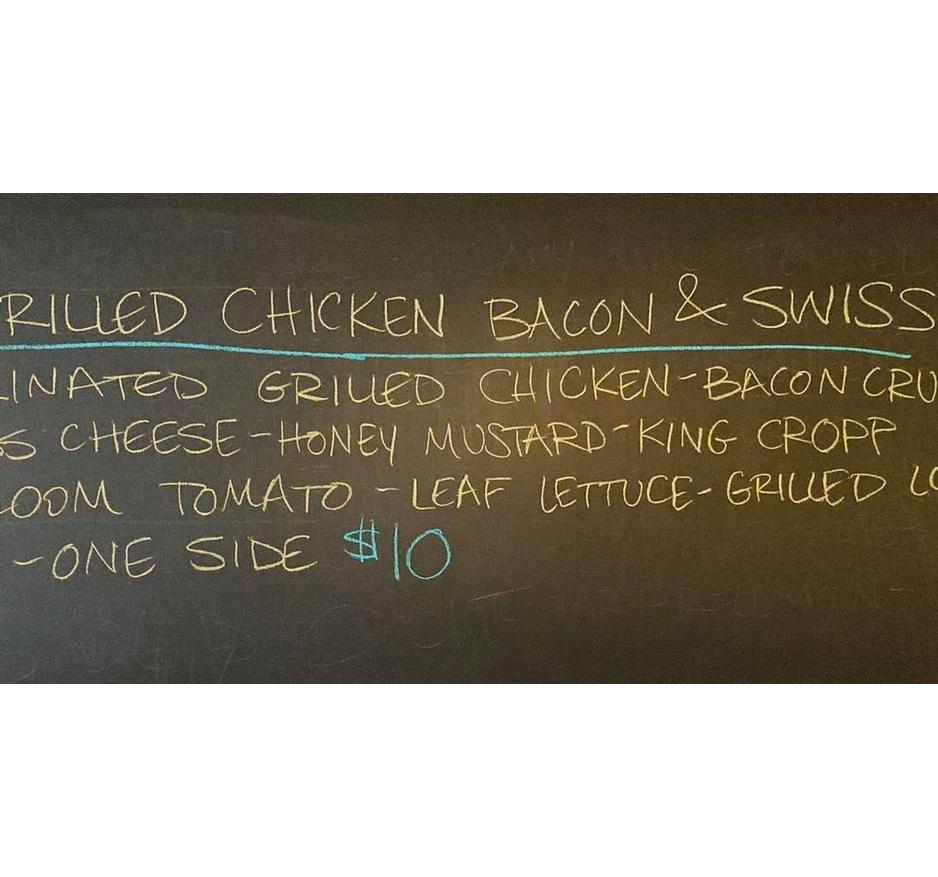 RILLED CHICKEN BACON & SWISS
INATED GRILLED CHICKEN-BACON CRU
SS CHEESE-HONEY MUSTARD-KING CROPP
LOOM TOMATO - LEAF LETTUCE-GRILLED LO
-ONE SIDE $10